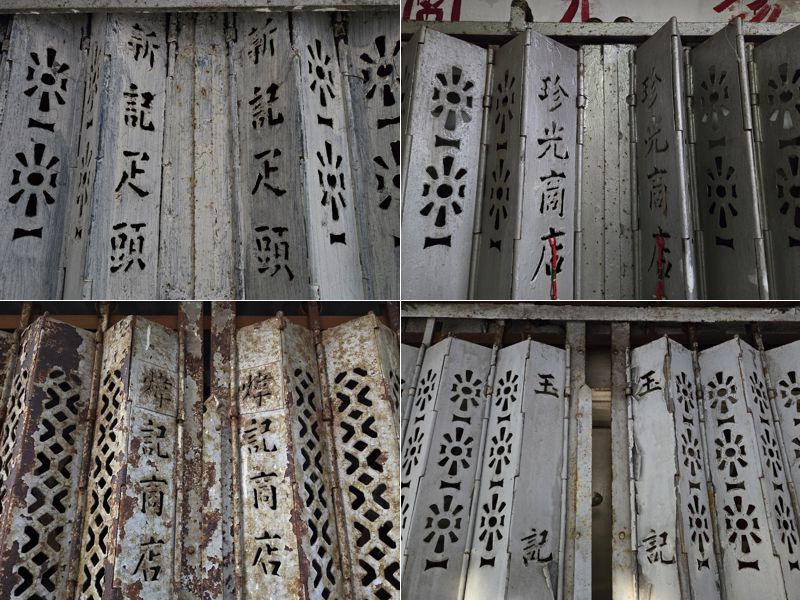 新記疋頭
新記疋頭
珍光商店
珍光商店
煒記商店
煒記商店
玉記
玉記